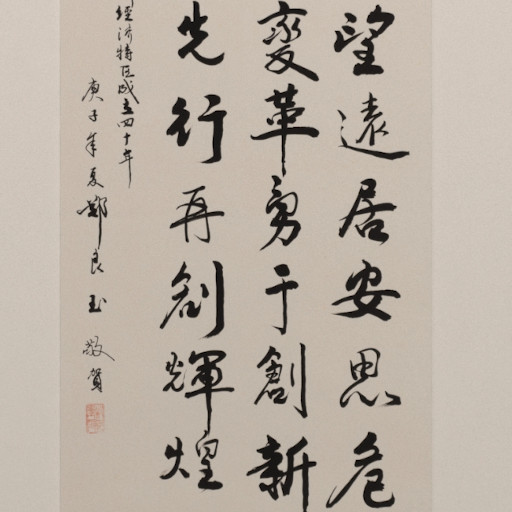 望遠居安思危
變革勇于創新
先行再創輝煌
經濟特區成立四十年
庚子年夏鄭良玉敬賀